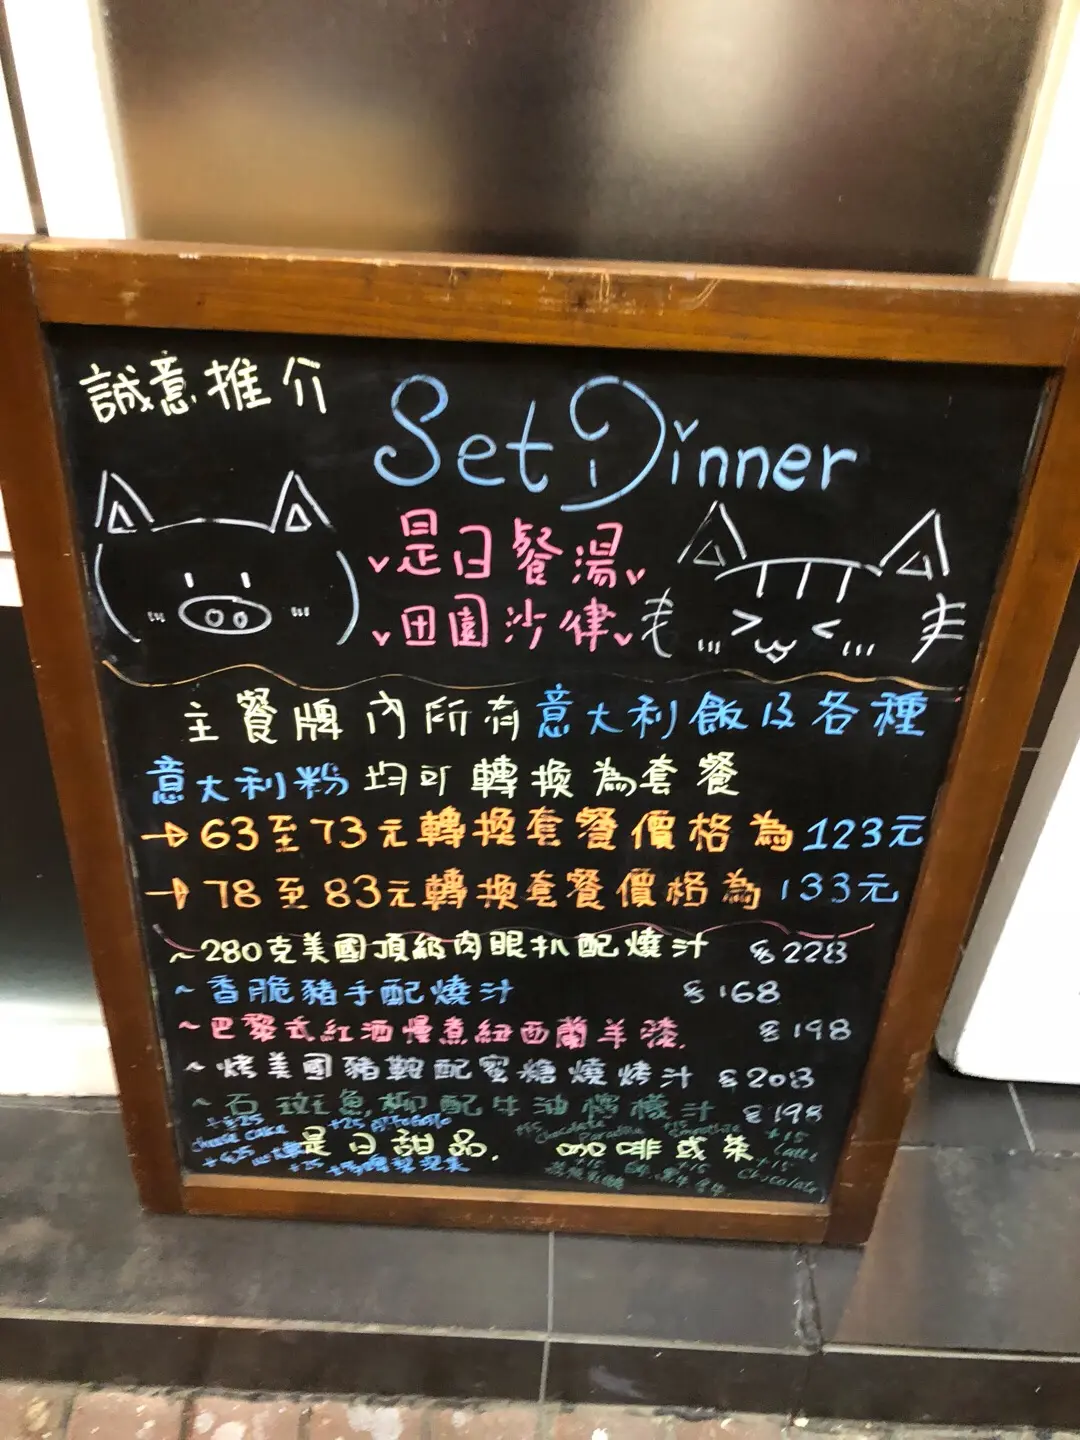 誠意推介
Set Dinner
是日餐湯
田園沙律
主餐牌內所有意大利飯及各種
意大利粉均可轉換為套餐
→63至73元轉換套餐價格為123元
→78至83元轉換套餐價格為133元
~280克美國頂級肉眼扒配燒汁 $228
~香脆豬手配燒汁 $168
~巴黎式紅酒慢煮紐西蘭羊 $198
~烤美國豬鞍配蜜糖燒烤汁 $208
~石斑魚柳配牛油檸檬汁 $198
+$25 +25 Affogato
cheese cake
是日甜品. 咖啡或茶
+15 Chocolate Paradise
+15 Smoothie
+15 Latte
+15 Chocolate